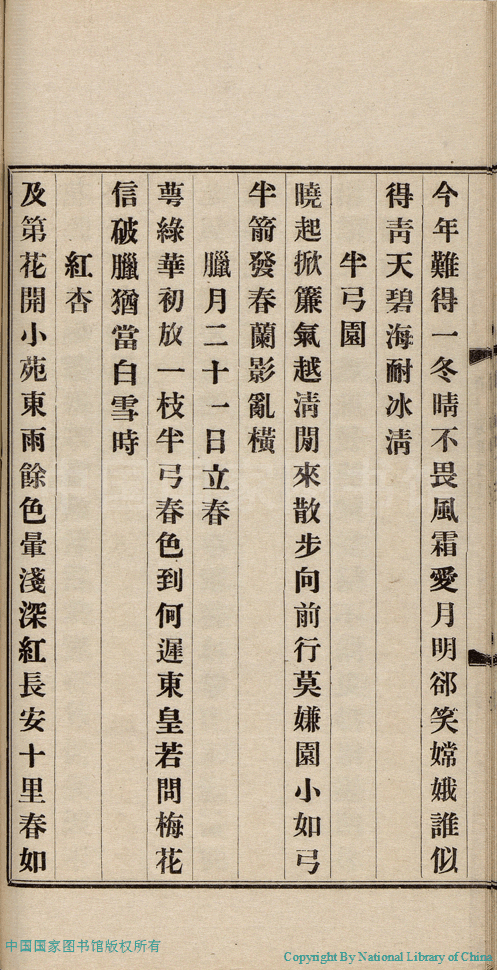 今年難得一冬晴不畏風霜愛月明郤笑嫦娥誰似
得靑天碧海耐冰淸
半弓園
曉起掀簾氣越淸閒來散步向前行莫嫌園小如弓
半箭發春蘭影亂橫
臘月二十一日立春
萼綠華初放一枝半弓春色到何遲東皇若問梅花
信破臘猶當白雪時
紅杏
及第花開小苑東雨餘色暈淺深紅長安十里春如
中国国家图书馆版权所有
Copyright By National Library of China